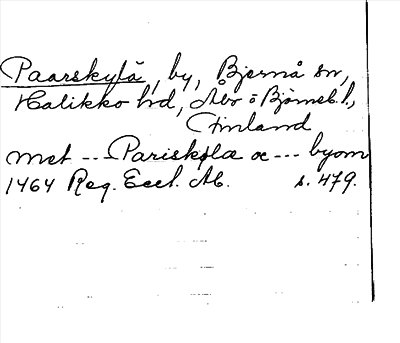 Paarskylä, by, Bjernå sn,
Halikko hd, Åbo o Björneb. l.,
Finland
met --- Pariskylæ oc --- byom
1464 Reg. Eccl. Ab. s. 479.